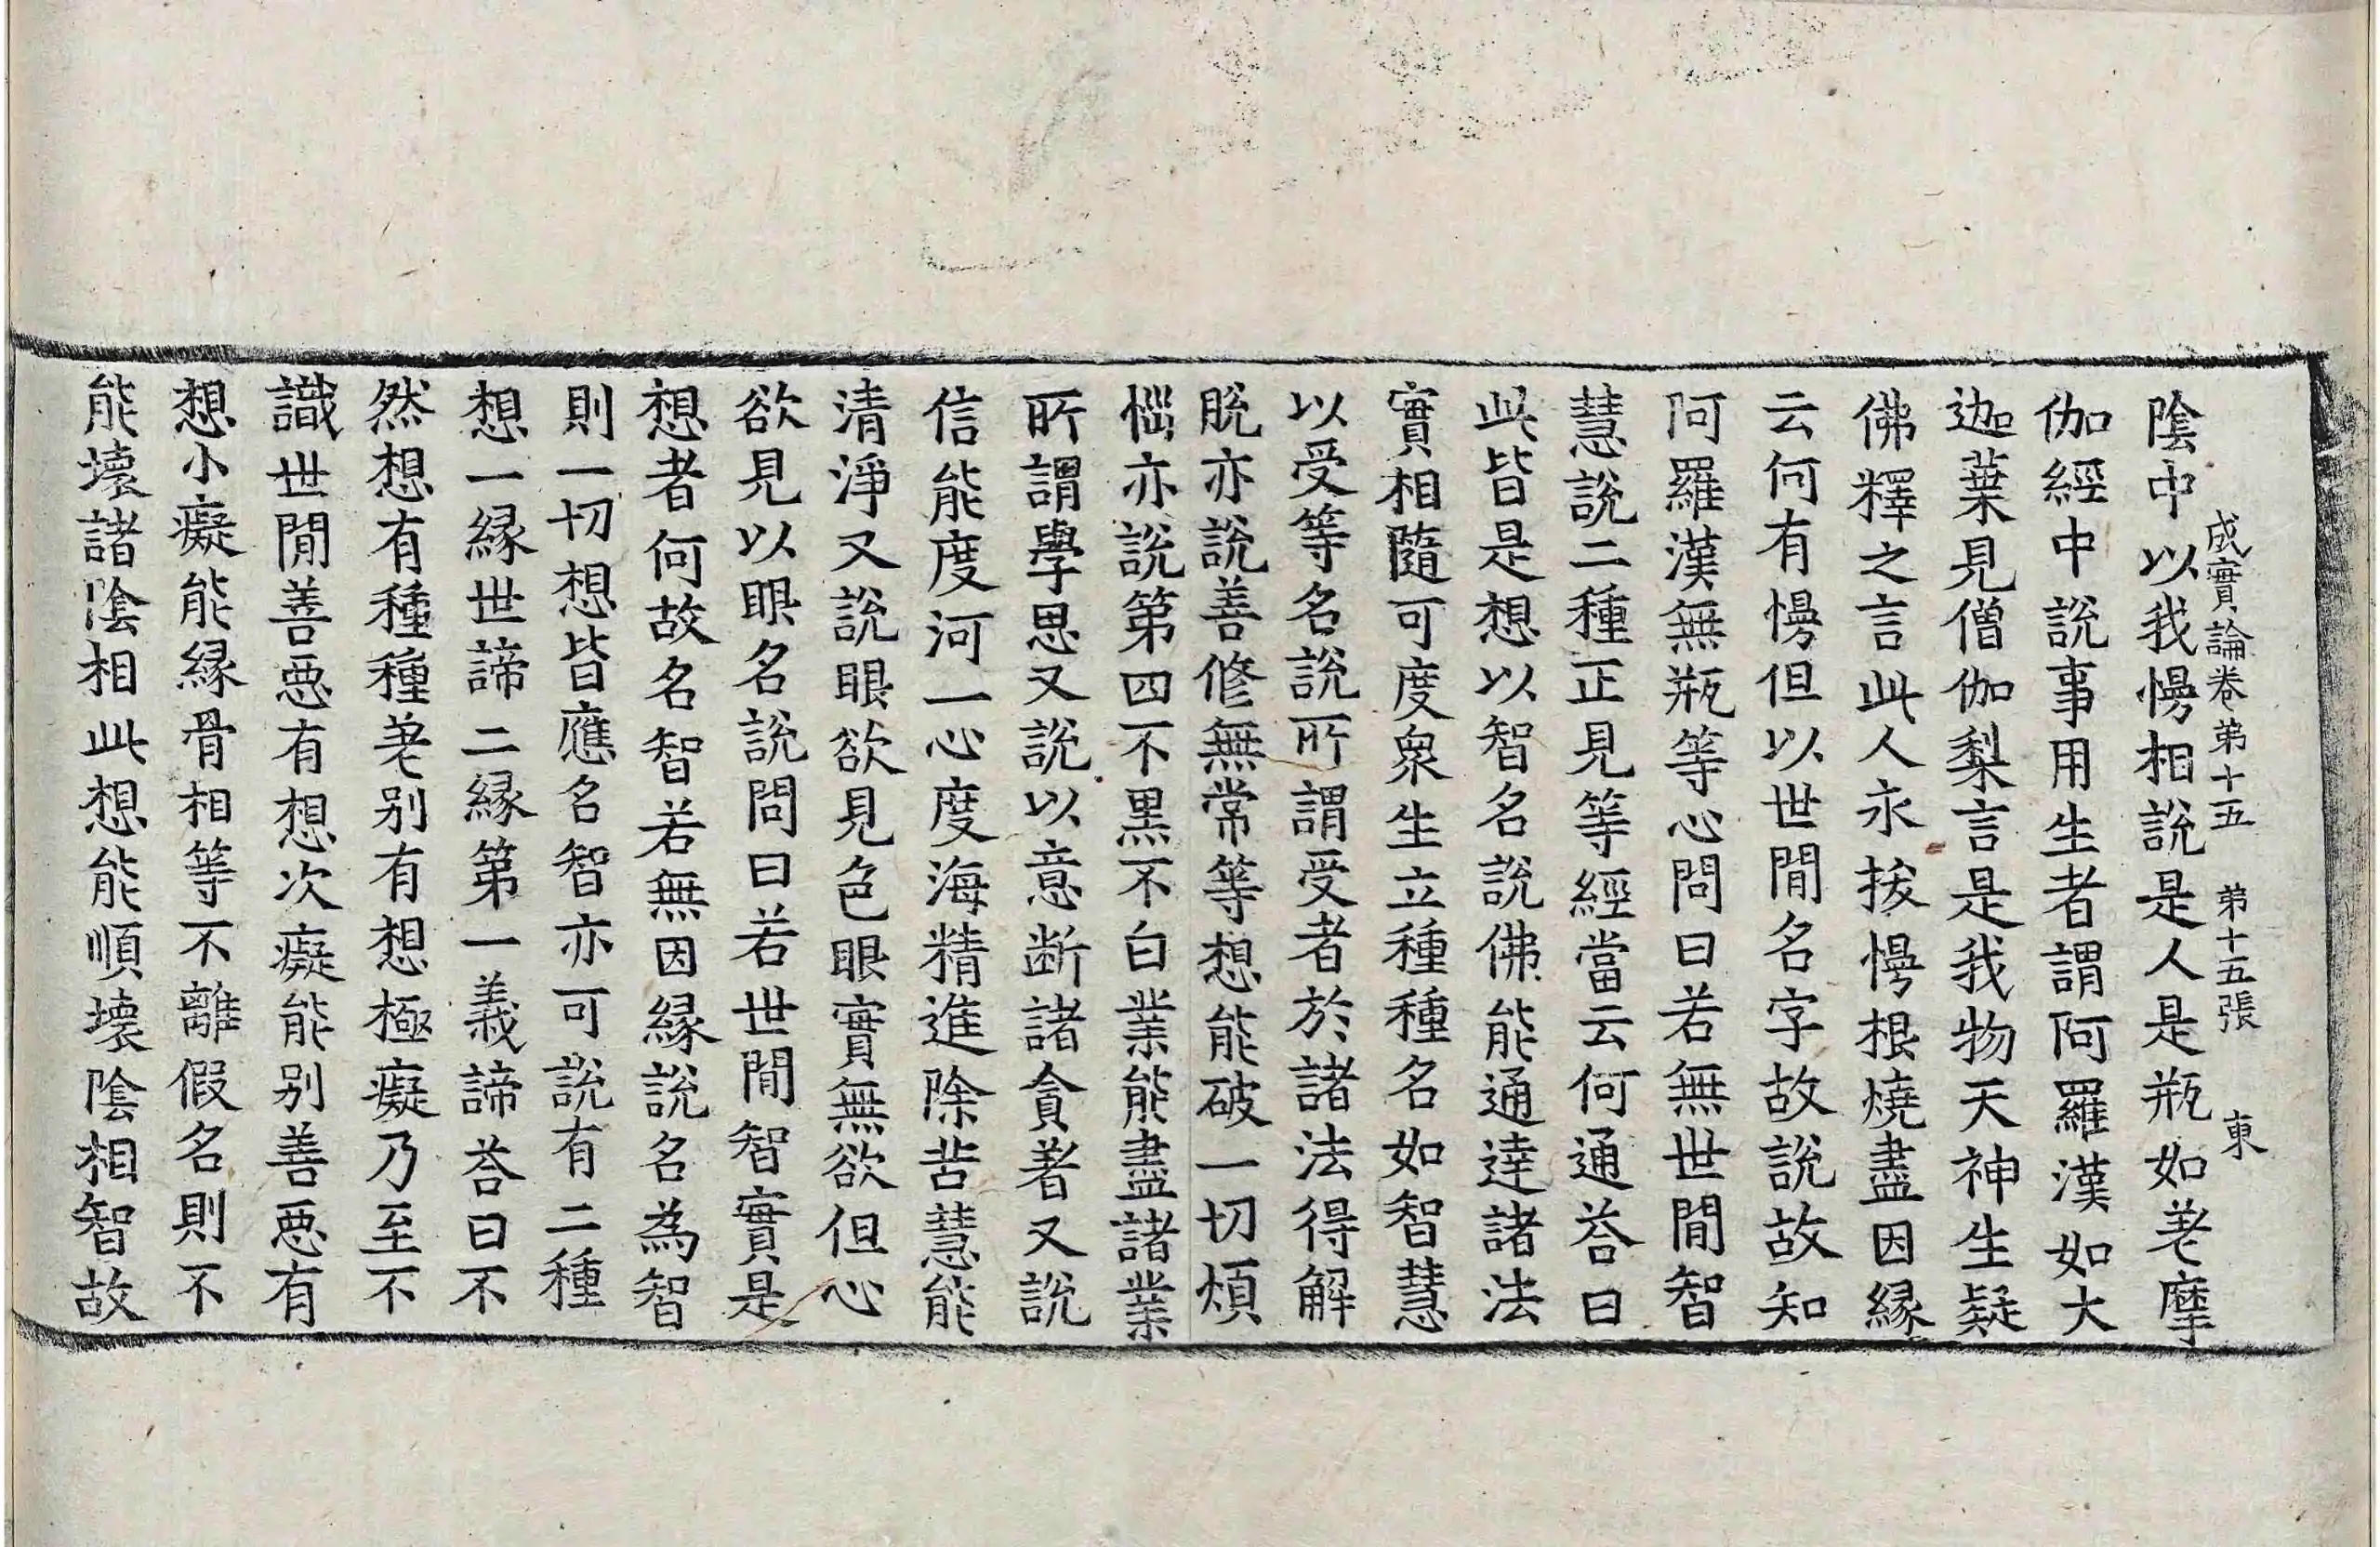 成實論卷第十五 第十五張 東
陰中以我慢相說是人是瓶如差摩
伽經中說事用生者謂阿羅漢如大
迦葉見僧伽梨言是我物天神生疑
佛釋之言此人永拔慢根燒盡因緣
云何有慢但以世閒名字故說故知
阿羅漢無瓶等心問曰若無世閒智
慧說二種正見等經當云何通荅曰
此皆是想以智名說佛能通達諸法
實相隨可度衆生立種種名如智慧
以受等名說所謂受者於諸法得解
脫亦說善修無常等想能破一切煩
惱亦說第四不黑不白業能盡諸業
所謂學思又說以意断諸貪著又說
信能度河一心度海精進除苦慧能
清淨又說眼欲見色眼實無欲但心
欲見以眼名說問曰若世閒智實是
想者何故名智若無因緣說名為智
則一切想皆應名智亦可說有二種
想一緣世諦二緣第一義諦荅曰不
然想有種種差别有想極癡乃至不
識世閒善惡有想次癡能别善惡有
想小癡能緣骨相等不離假名則不
能壞諸陰相此想能順壞陰相智故